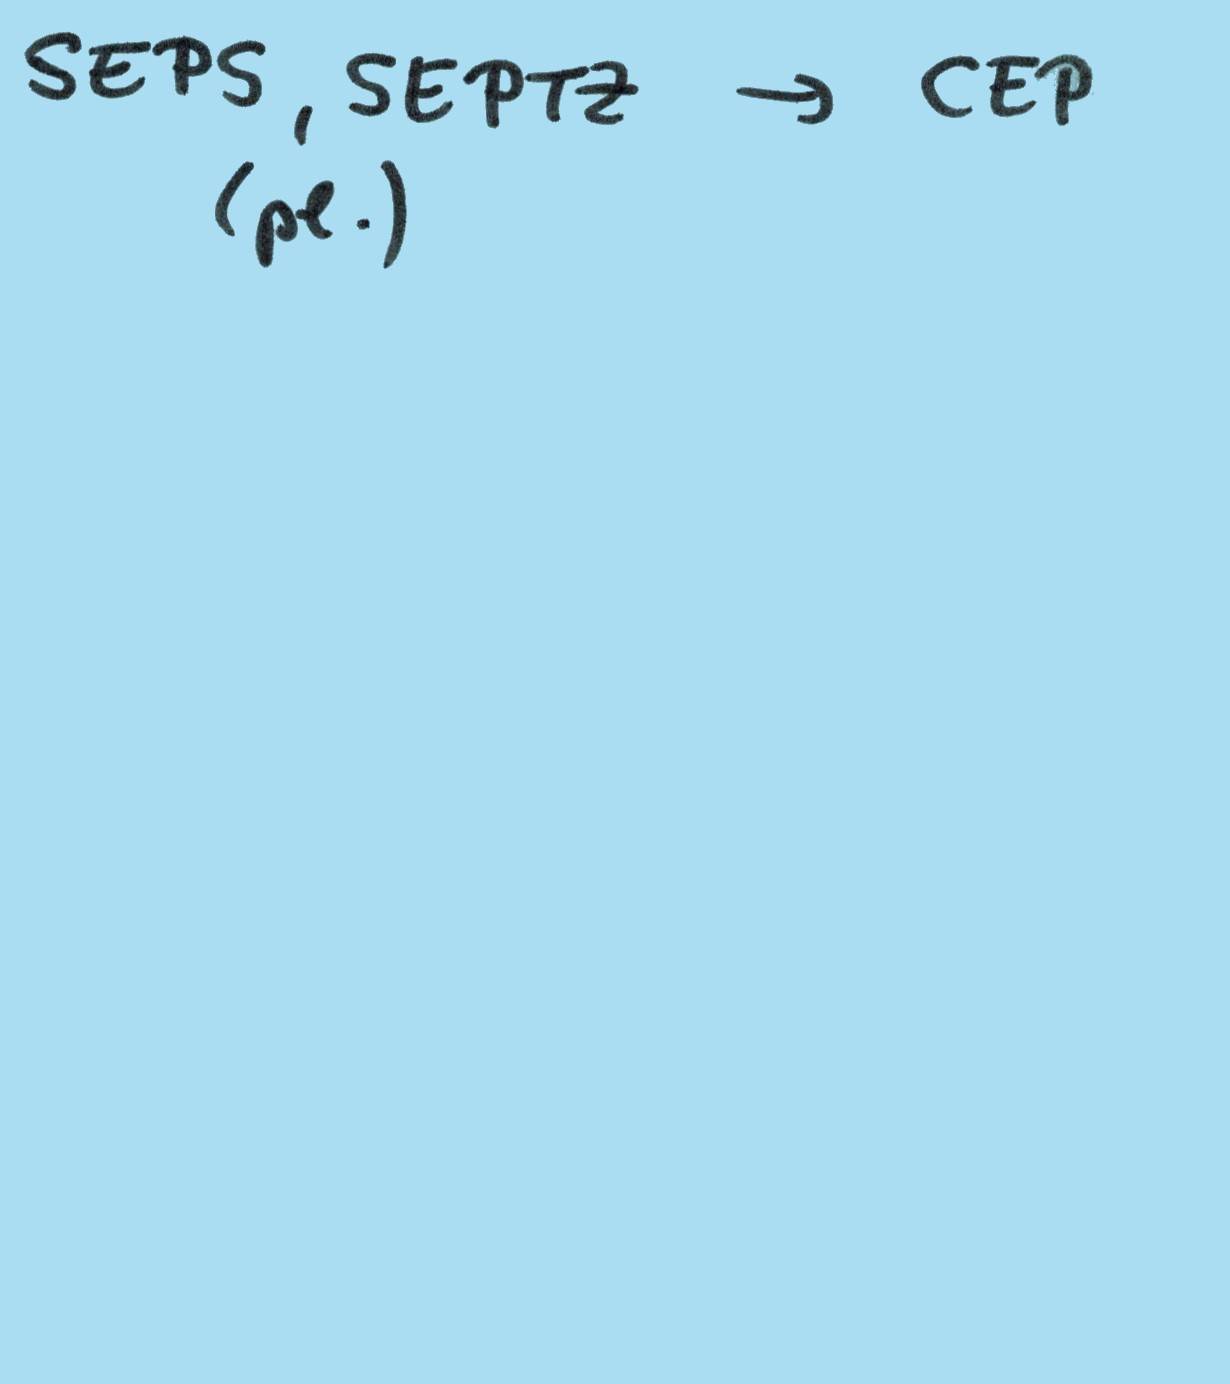 SEPS, SEPTZ → CEP
(pl.)